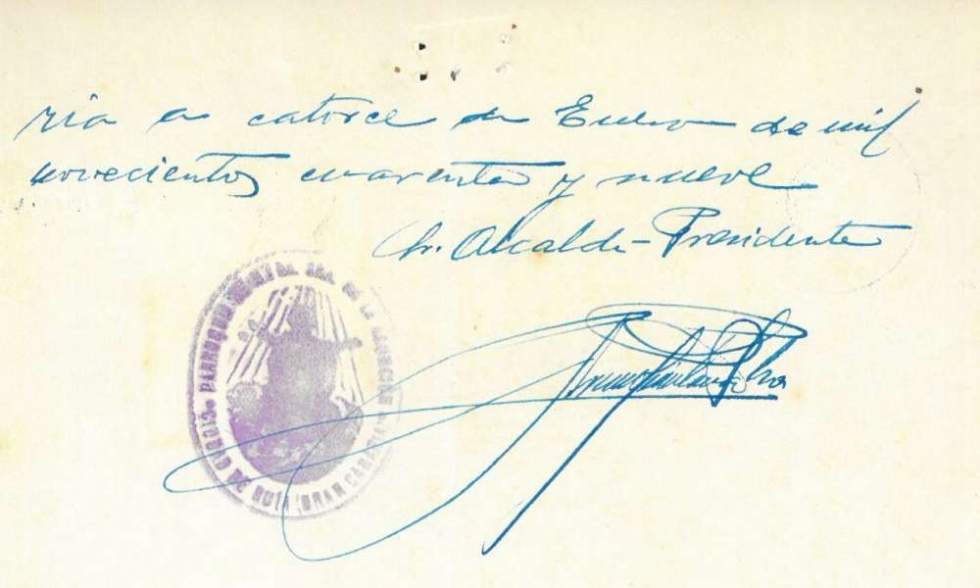 ria a catorce de Enero de mil
novecientos cuarenta y nueve
Alcalde-Presidente
PARROQUIA DE NTRA. SRA. DE LA
DE GUIA (GRAN CANARIA)